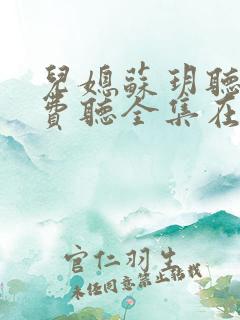 兒媳蘇玥聽
費聽全集在
官仁羽生
未经同意禁止转载